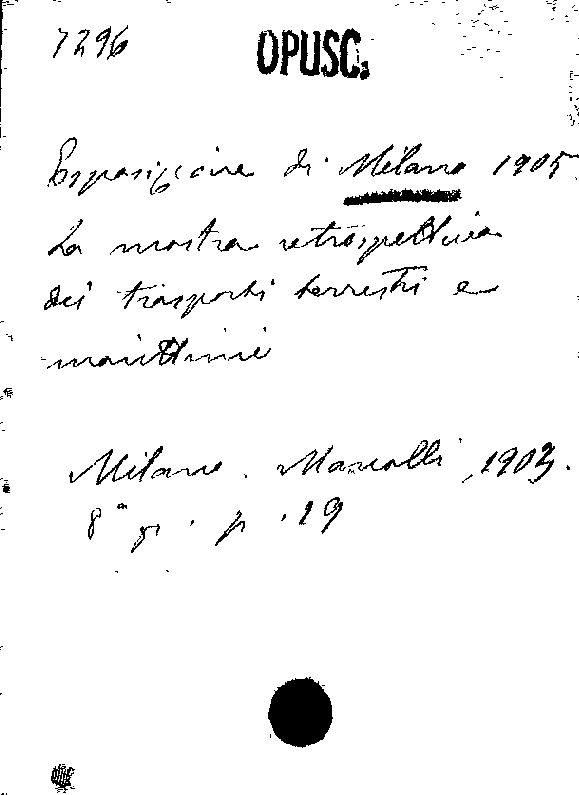 7296
OPUSC.
Esposizione di Milano 1905
La mostra retrospettiva
dei trasporti terrestri e
marittimi
Milano. Marcolli, 1903.
8° gr. p. 19